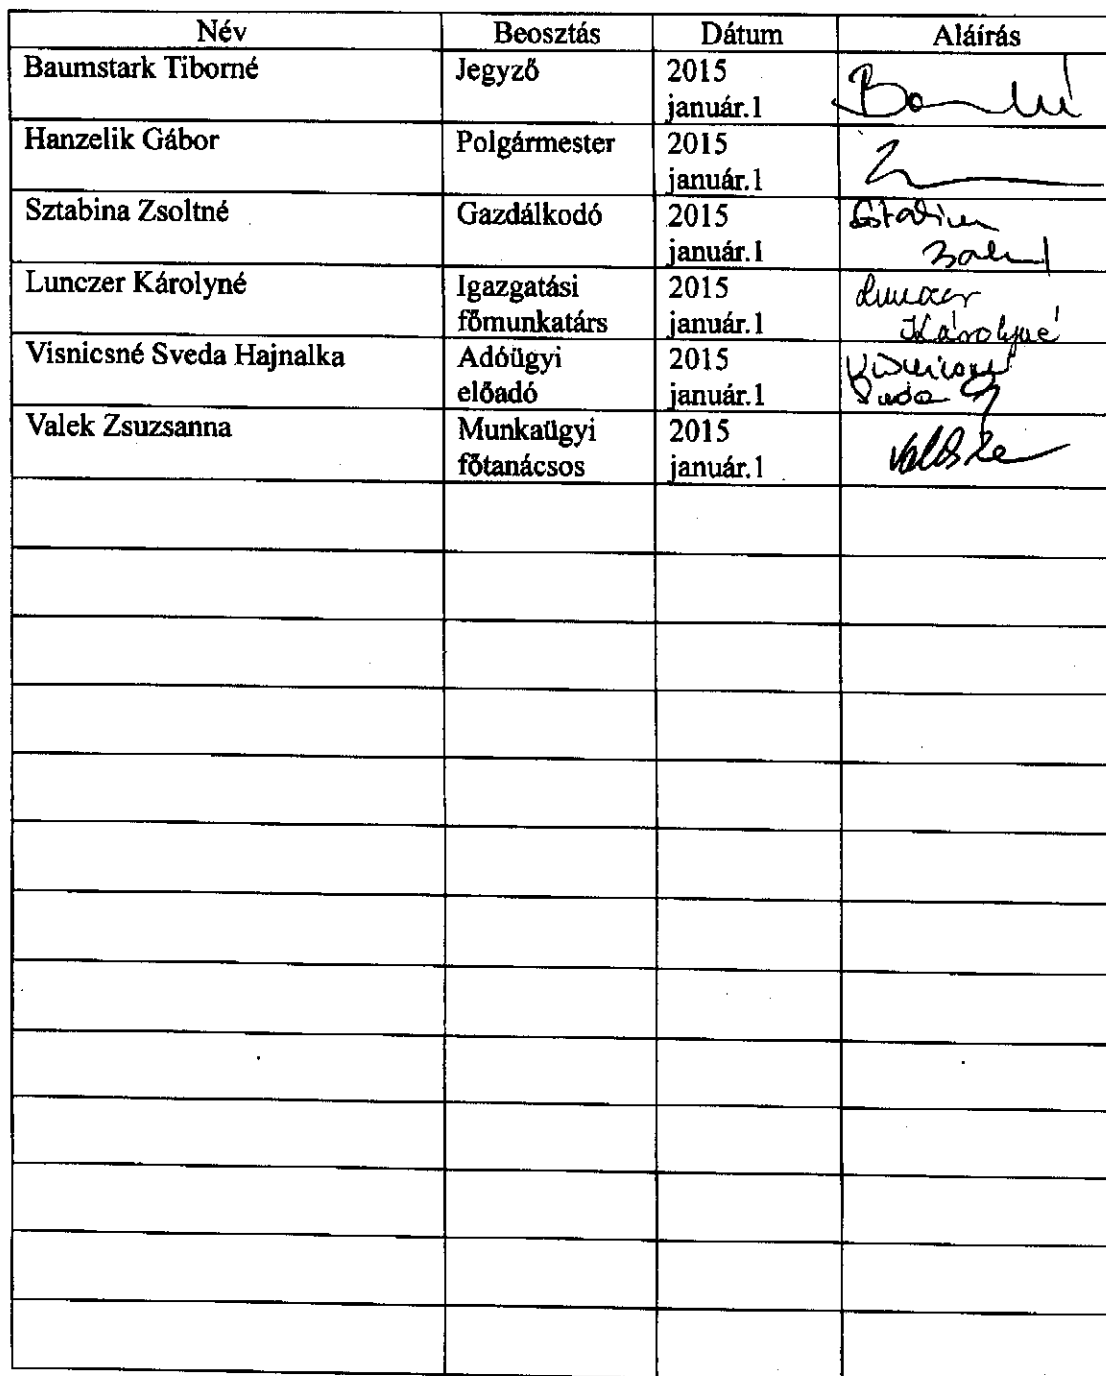 Név Beosztás Dátum Aláírás
Baumstark Tiborné Jegyző 2015
január.1
Hanzelik Gábor Polgármester 2015
január.1
Sztabina Zsoltné Gazdálkodó 2015
január.1
Lunczer Károlyné Igazgatási 2015 Lunczer
főmunkatárs január.1 Károlyné
Visnicsné Sveda Hajnalka Adóügyi 2015
előadó január.1
Valek Zsuzsanna Munkaügyi 2015
főtanácsos január.1